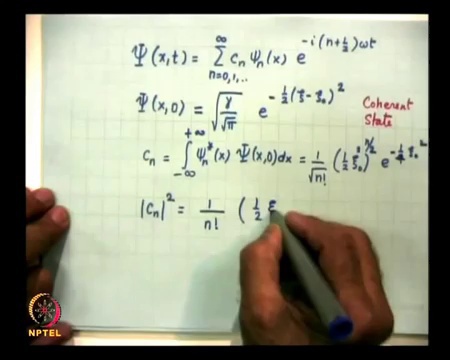 Ψ(x,t) = ∑_{n=0,1,..}^{∞} c_n ψ_n(x) e^{-i(n+½)ωt}
Ψ(x,0) = √(γ/√π) e^{-½(ξ-ξ₀)²}
Coherent State
c_n = ∫_{-∞}^{+∞} ψ_n*(x) Ψ(x,0)dx = 1/√n! (½ξ₀²)^{n/2} e^{-¼ξ₀²}
|c_n|² = 1/n! (½ ξ
NPTEL